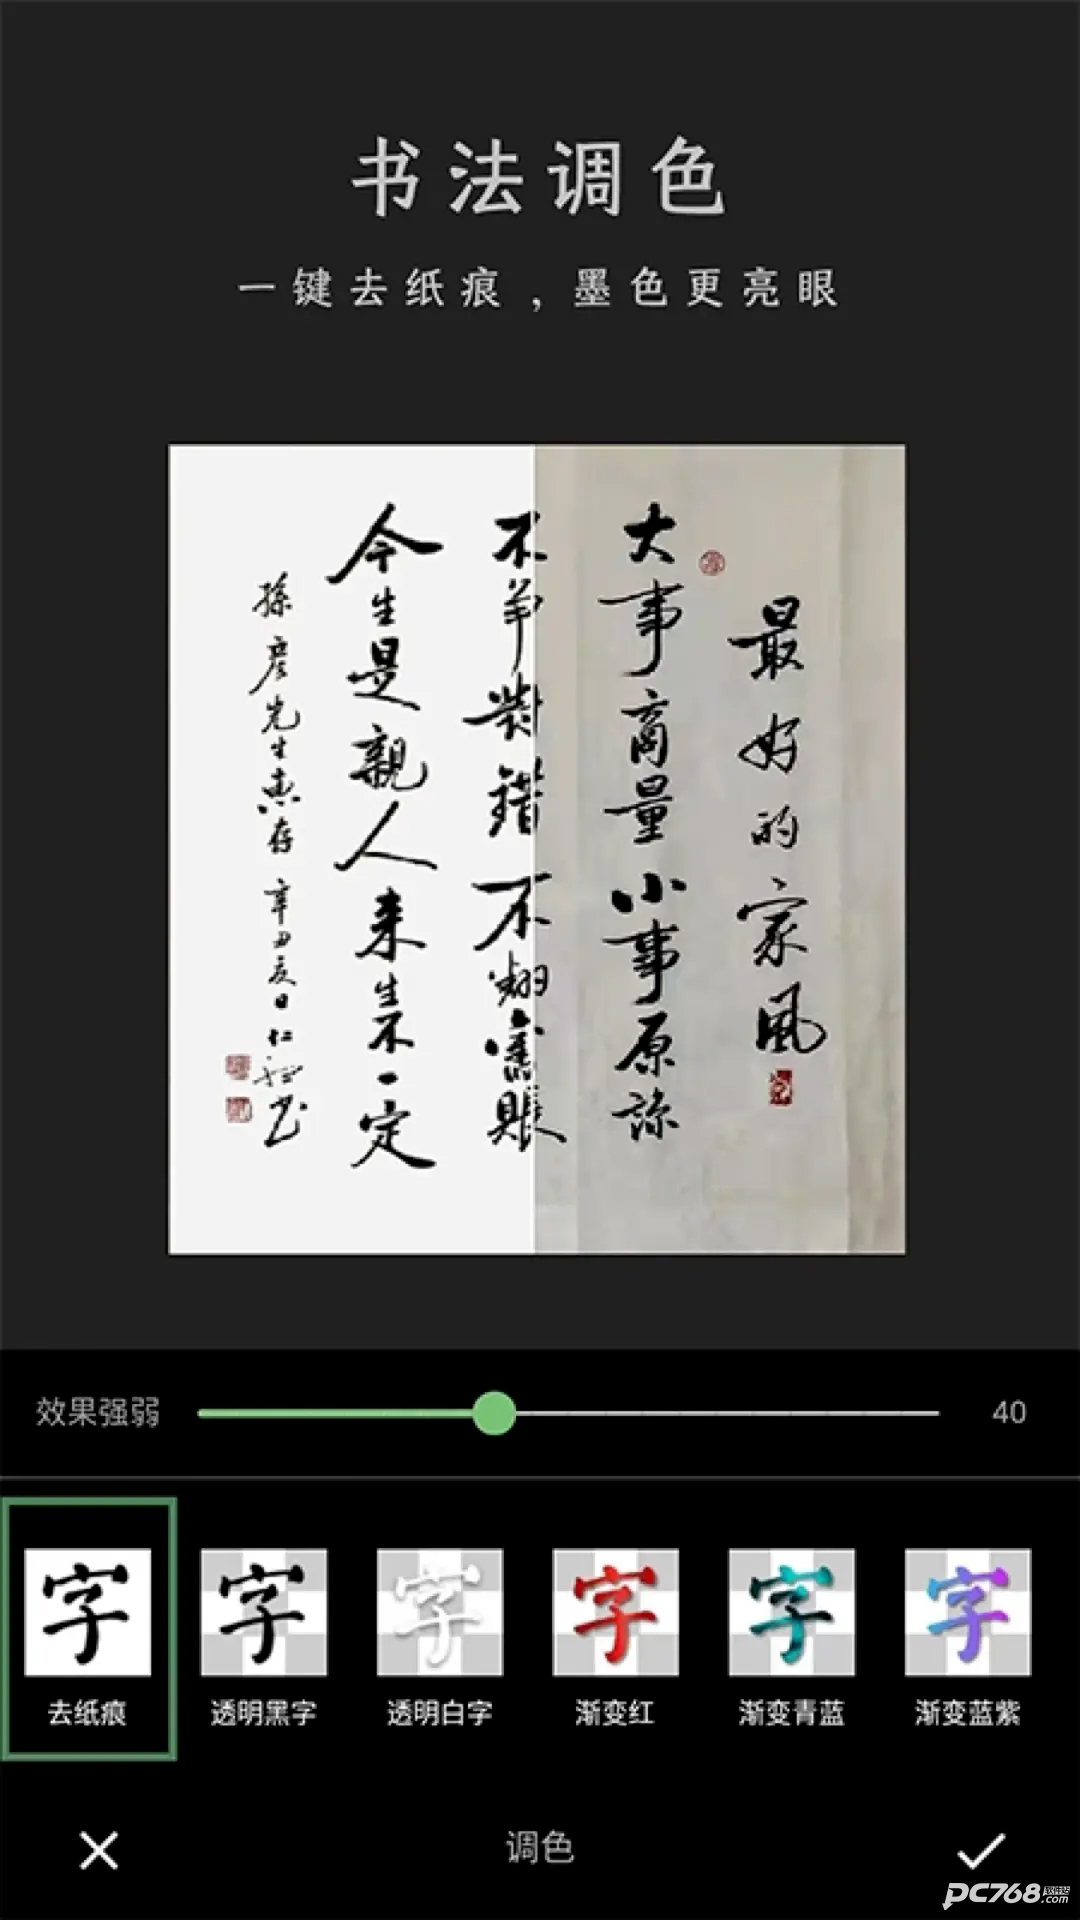 书法调色
一键去纸痕，墨色更亮眼
最好的家风
大事商量小事原谅
不争對錯不翻舊賬
今生是親人来生不一定
孫彦先生惠存 辛丑夏日仁 书
效果强弱
40
字
字
字
字
字
字
去纸痕
透明黑字
透明白字
渐变红
渐变青蓝
渐变蓝紫
调色
PC768软件站
.com